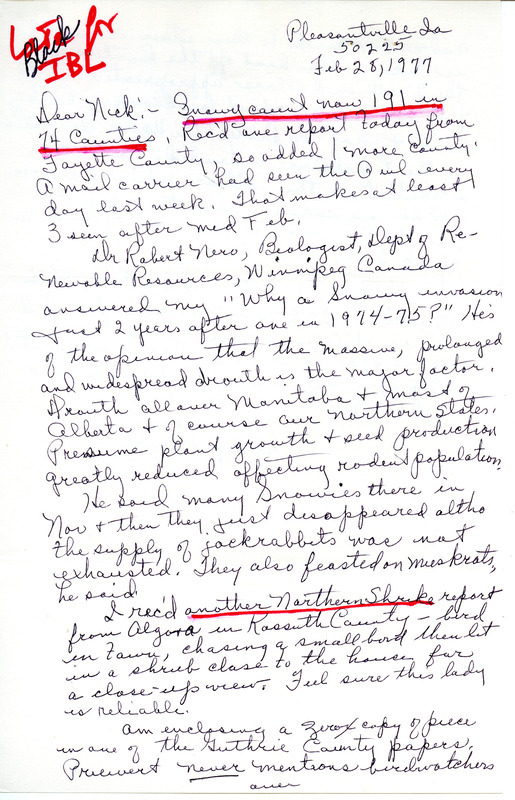 Black for
IBL
Pleasantville Ia
50225
Feb 28, 1977
Dear Nick:- Snowy count now 191 in
74 Counties. Rec'd one report today from
Fayette County, so added 1 more county.
A mail carrier had seen the Owl every
day last week. That makes at least
3 seen after mid Feb.
Dr Robert Nero, Biologist, Dept of Re-
newable Resources, Winnipeg Canada
answered my "Why a Snowy invasion
just 2 years after one in 1974-75?" He's
of the opinion that the massive, prolonged
and widespread drouth is the major factor.
Drouth all over Manitoba & most of
Alberta & of course our Northern States.
Presume plant growth & seed production
greatly reduced affecting rodent population.
He said many Snowies there in
Nov & then they just disappeared altho
the supply of jackrabbits was not
exhausted. They also feasted on muskrats,
he said
I rec'd another Northern Shrike report
from Algona in Kossuth County - bird
in town, chasing a small bird then lit
in a shrub close to the house for
a close-up view. Feel sure this lady
is reliable.
Am enclosing a zerox copy of piece
in one of the Guthrie County papers.
Priewert never mentions birdwatchers
over